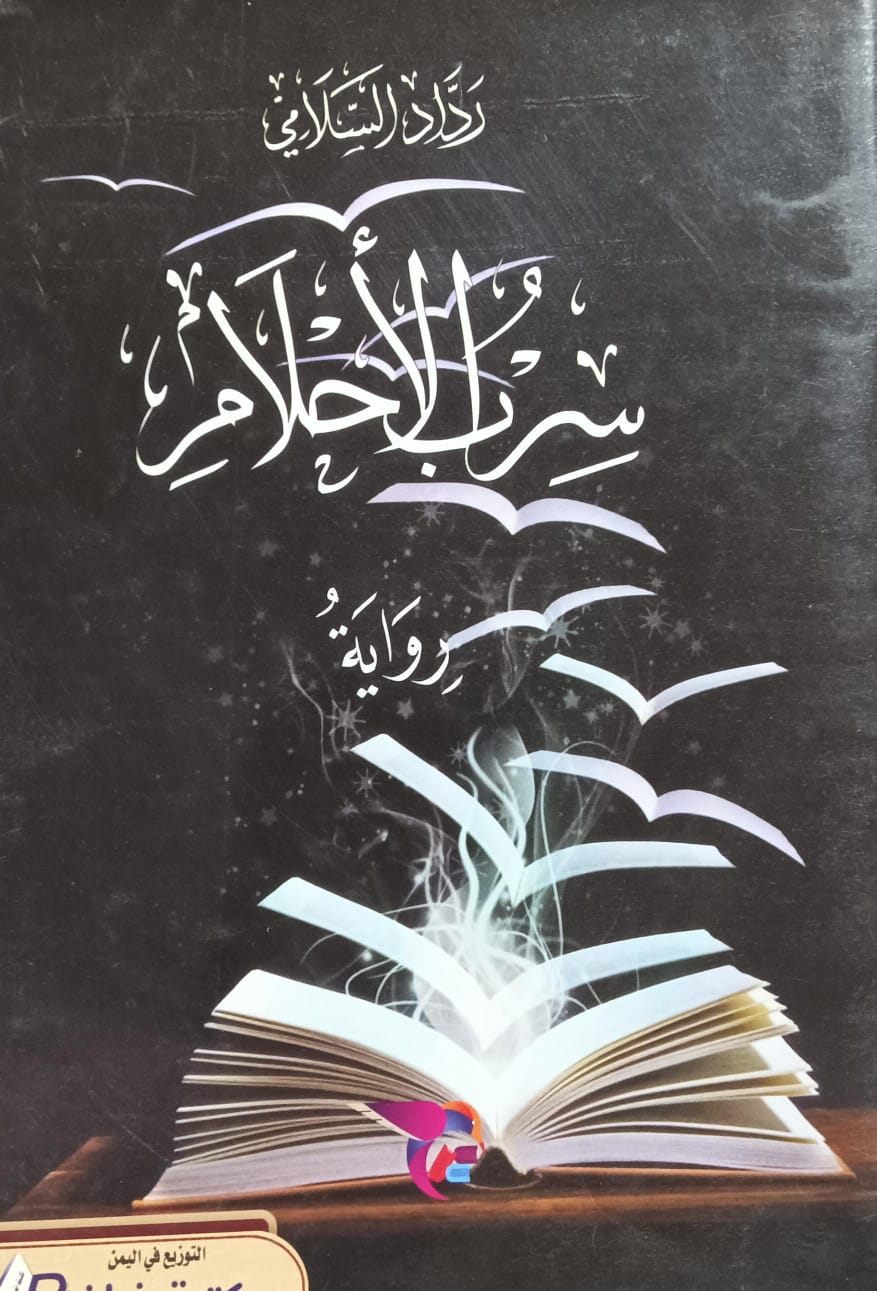 رَدَّاد السَّلَامِي
سِرْبُ الأَحْلَامِ
رِوَايَةٌ
التوزيع في اليمن